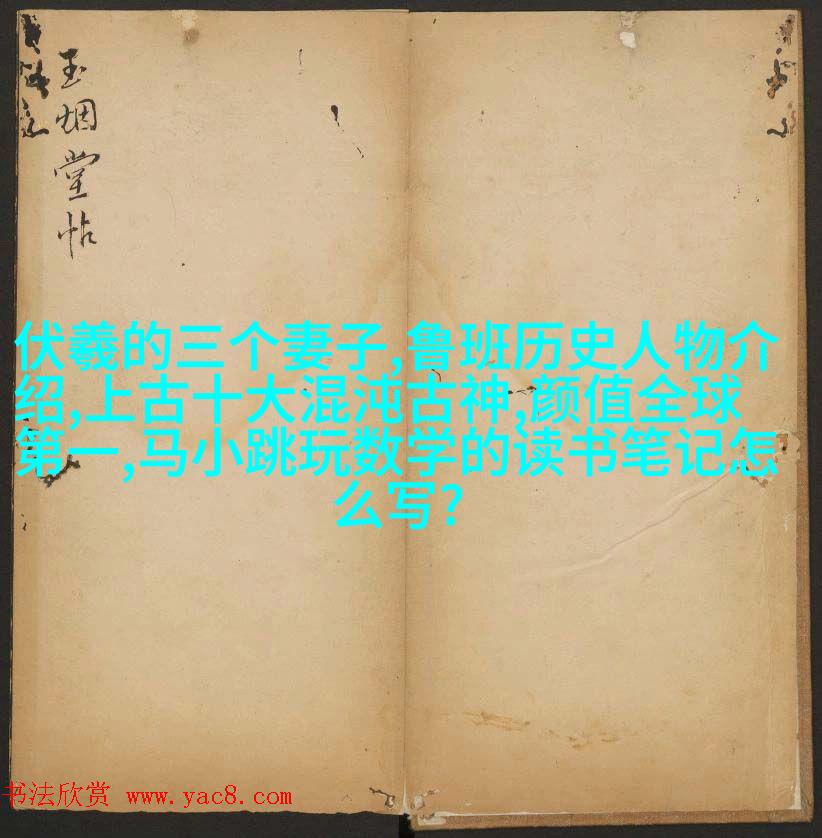 玉烟堂帖
伏羲的三个妻子,鲁班历史人物介
绍,上古十大混沌古神,颜值全球
第一,马小跳玩数学的读书笔记怎
么写?
书法欣赏 www.yac8.com